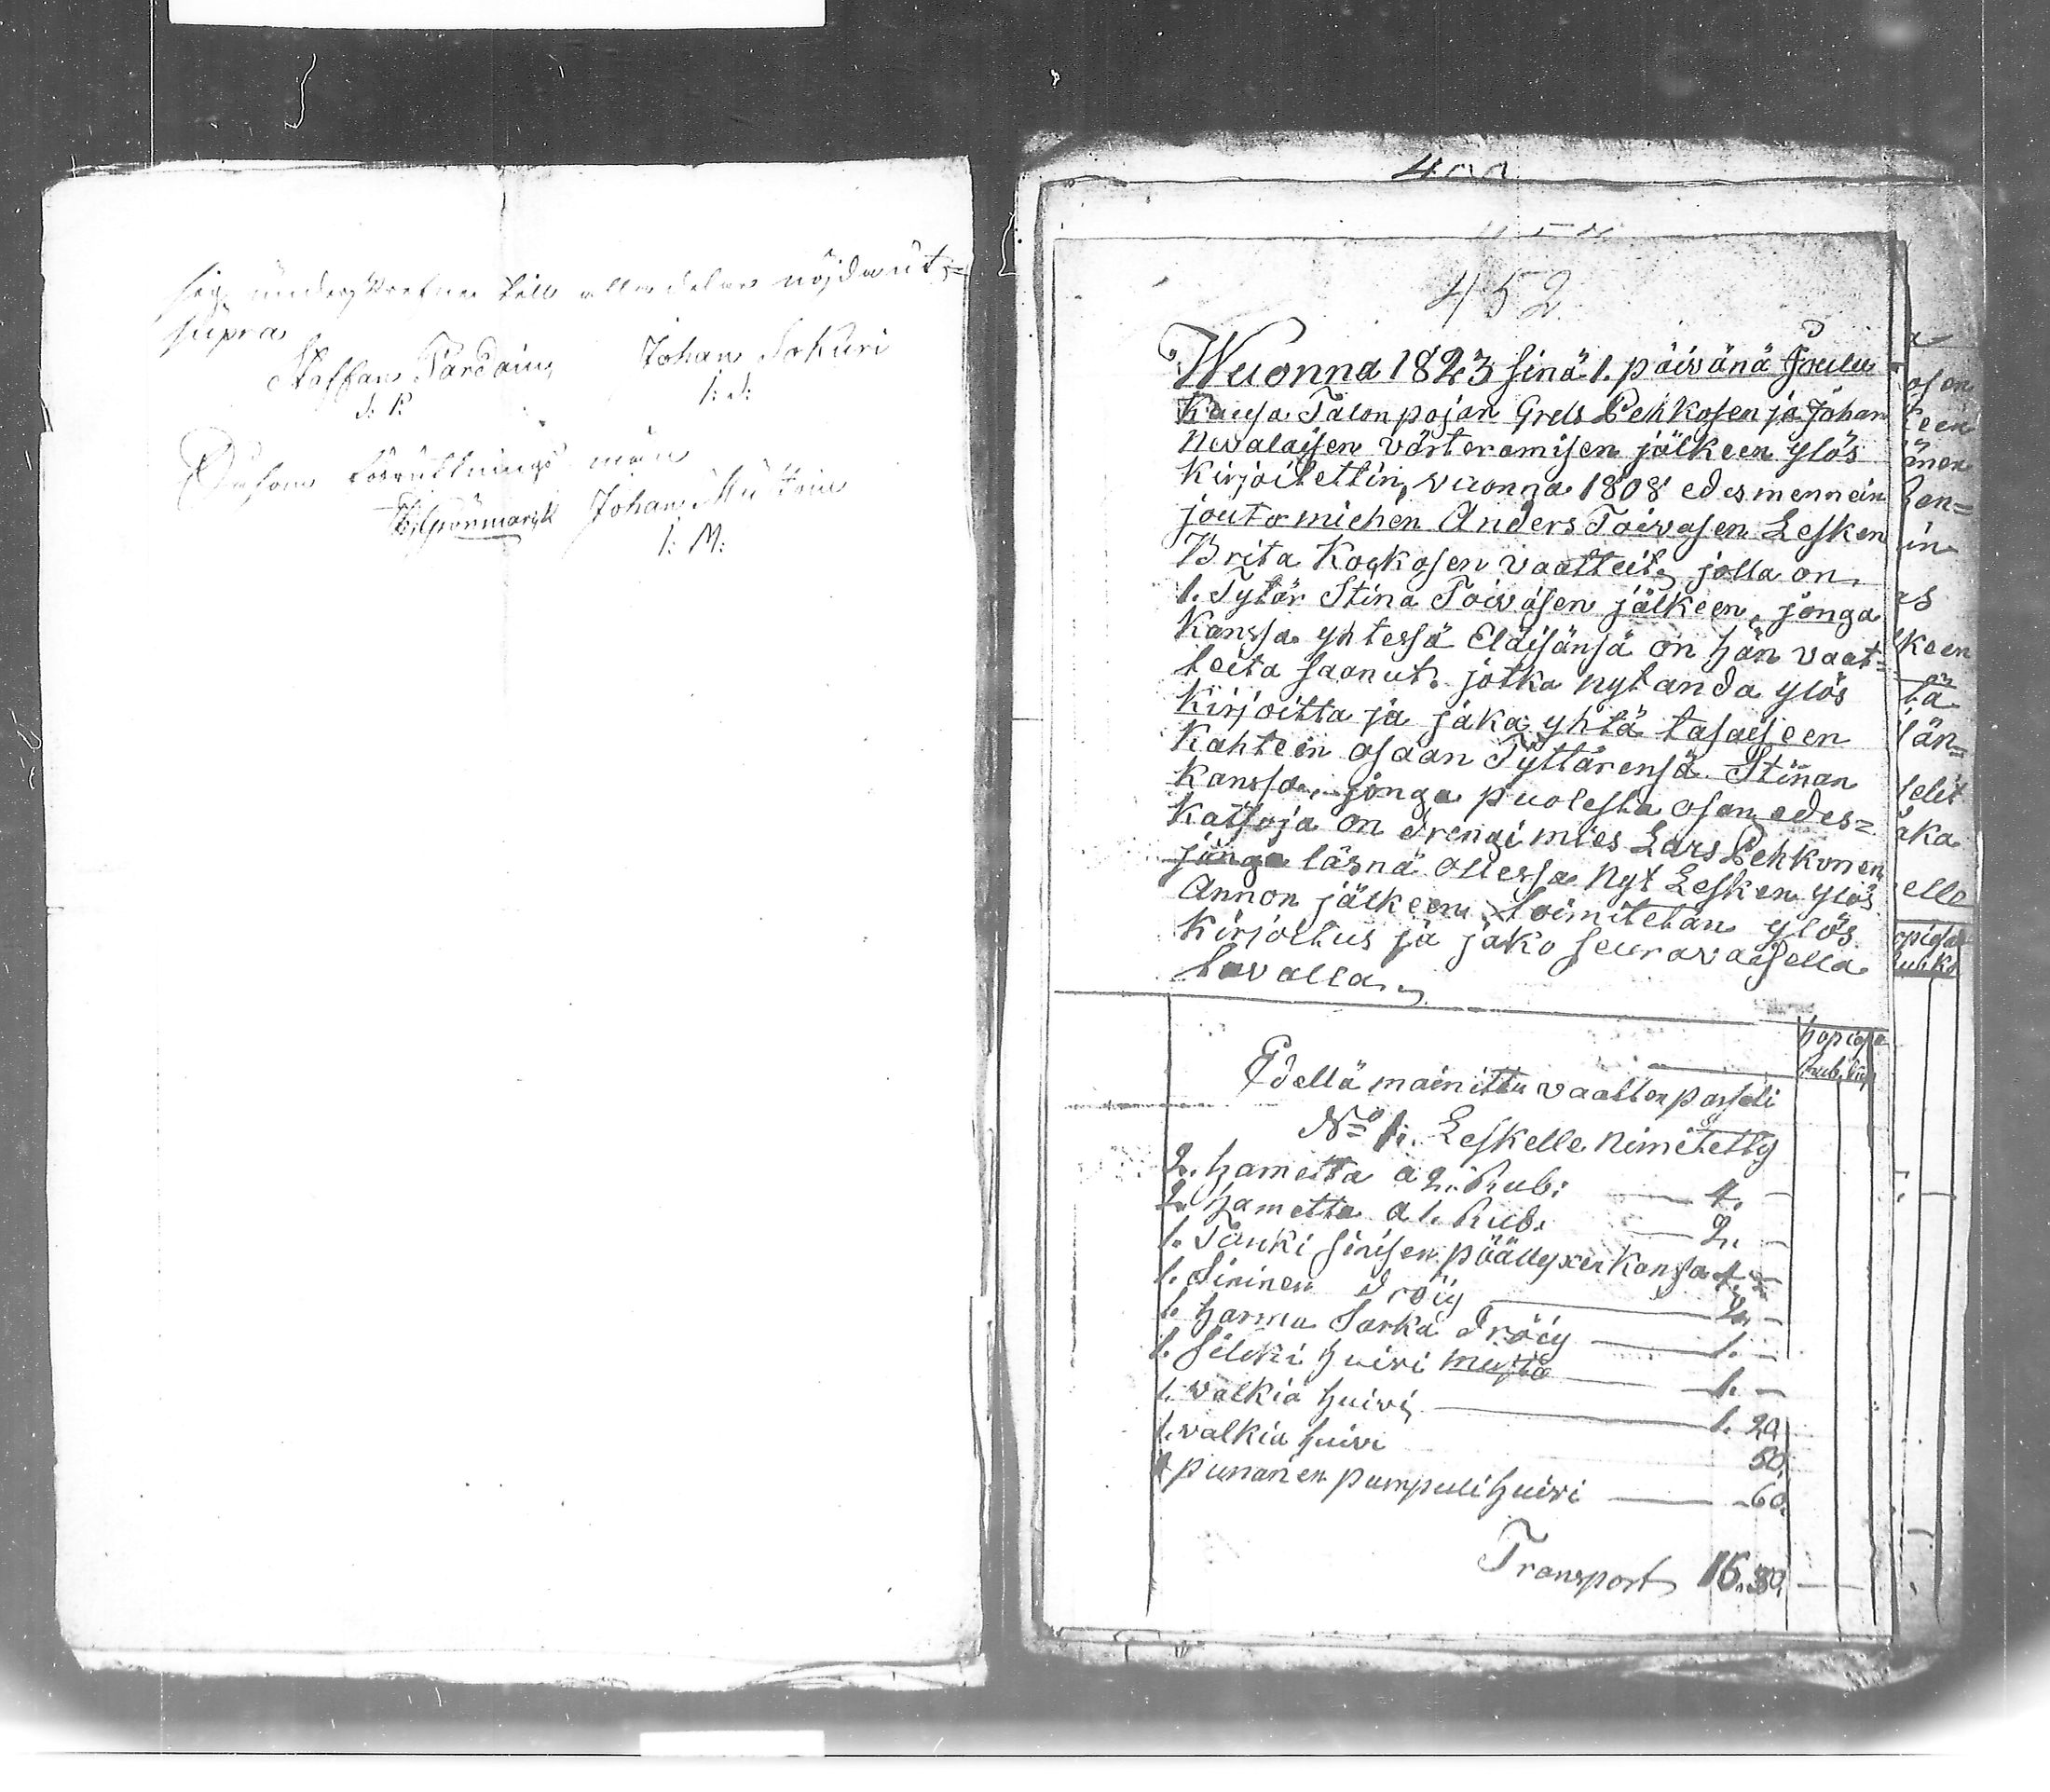 sig underskrefne till alla delar nöjda ut=
supra
Staffan Pardain Johan Sokuri
S. P. I: S:
Såsom förrättnings män
Johan Mutain
I: M:
452
Wuonna 1823 sinä 1. päivänä Joulu
Kausa Talonpojan Grels Pehkosen ja Johan
Nevalaisen värteramisen jälkeen ylös
Kirjoitettin, vuonna 1808 edesmennein
jouto miehen Anders Toivasen Lesken
Brita Kockosen vaatteit, jolla on
1. Tytär Stina Toivasen jälkeen, jonga
Kanssa yhtessä Eläisänsä on hän vaat=
teita saanut. jotka nyt anda ylös
Kirjoitta ja jaka yhtä tasaiseen
Kahtein osaan Tyttärensä Stinan
Kanssa, jonga puolesta osan edes=
Katsoja on drengi mies Lars Pehkonen
jonga läsnä ollessa Nyt Lesken ylös
Annon jälkeen, toimitetan ylös
Kirjoitus ja jako seuravaisella
tavalla,
hopiasa
Rub. kop
Edellä mainittu vaatten parseli
No 1: Leskelle Nimitetty
2. hametta a 2: Rub: 4. —
2. hametta a 1. Rub. 2. —
1. Tanki sinisen päällyxen kansa 4. —
1. Sininen dröijy 2. —
1. harmu Sarka dröijy 1. —
1. silcki huivi musta 1. —
1. valkia huivi 1. 20
1. valkia huivi 50.
1 punanen pumpuli huivi 60.
Transport 16. 30.